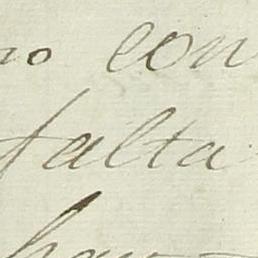 no con
falta